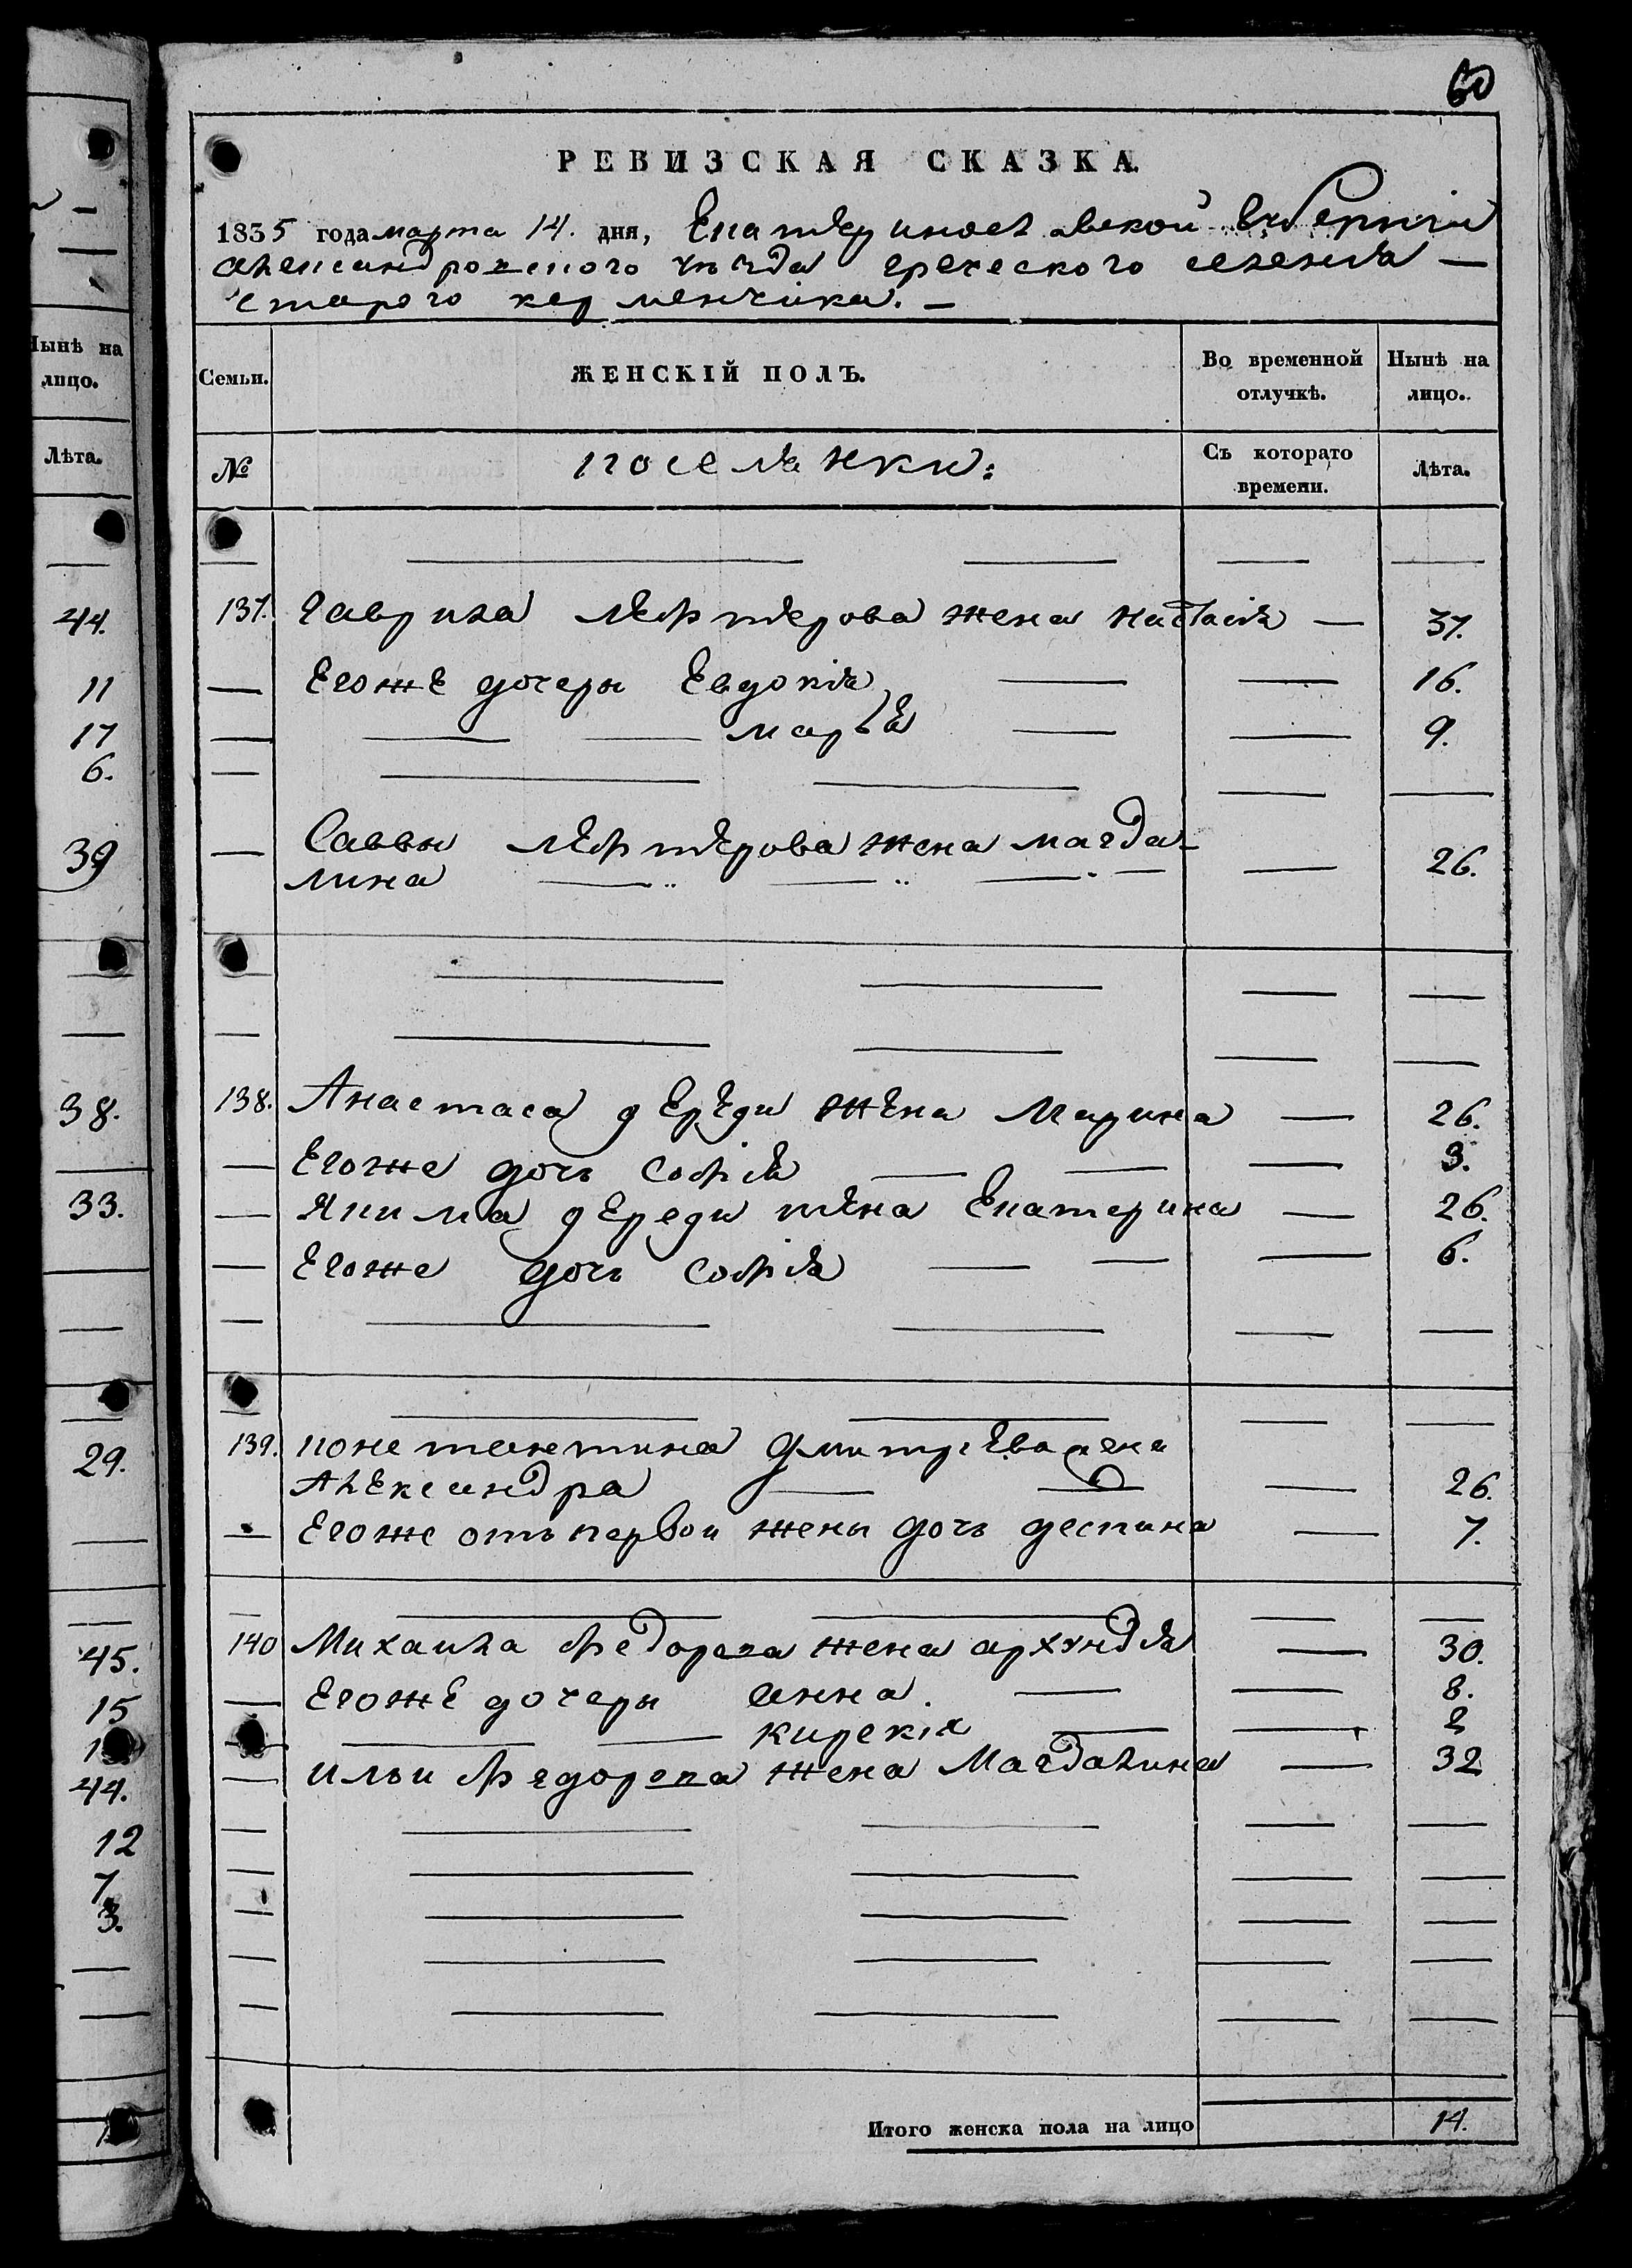 60
РЕВИЗСКАЯ СКАЗКА.
1835 года марта 14. дня, Екатеринославской губернии
александровского уезда греческого селения —
старого керменчика. —
Нынѣ на лицо.
Лѣта.
44.
11
17
6.
39
38.
33.
29.
45.
15
44.
12
7
3.
Семьи. ЖЕНСКІЙ ПОЛЪ. Во временной отлучкѣ. Нынѣ на лицо.
№ поселянки: Съ которато времени. Лѣта.
137. гаврила лефтерова жена настасія — 37.
— Егоже дочери Евдокія — — 16.
— — — марья — — 9.
— Саввы лефтерова жена магда-
лина — — — — 26.
138. Анастаса дереди жена Марина — 26.
— Егоже дочь софія — — — 3.
— Якима дереди жена Екатерина — 26.
— Егоже дочь софія — — — 6.
139. константина дмитріева жена
Александра — — — 26.
— Егоже отъ первои жены дочь деспина — 7.
140 Михаила федорока жена архундія — 30.
— Егоже дочери анна. — — 8.
— — — кирекія — — 2
— ильи федорока жена Магдалина — 32
Итого женска пола на лицо 14.